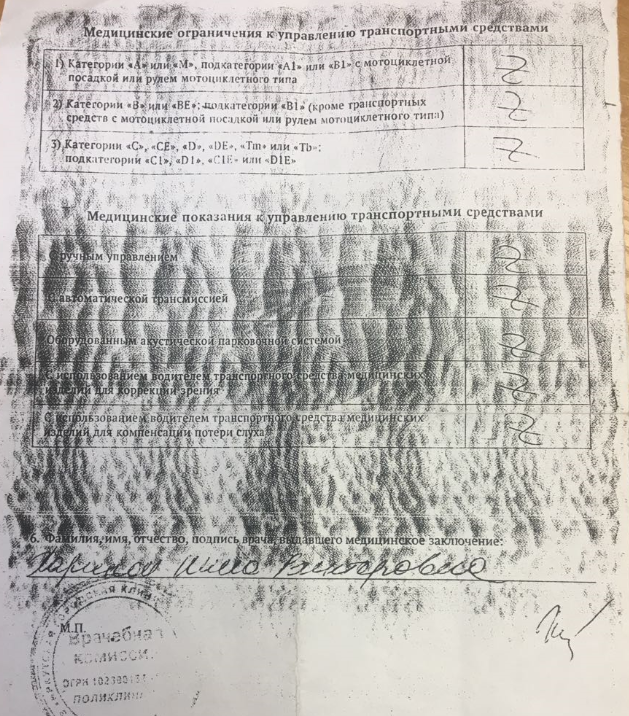 Медицинские ограничения к управлению транспортными средствами
1) Категории «А» или «М», подкатегории «А1» или «Б1» с мотоциклетной
посадкой или рулем мотоциклетного типа
Z
2) Категории «В» или «ВЕ»; подкатегории «В1» (кроме транспортных
средств с мотоциклетной посадкой или рулем мотоциклетного типа)
Z
3) Категории «С», «СЕ», «D», «DE», «Tm» или «Tb»;
подкатегории «С1», «D1», «С1Е» или «D1E»
Z
Медицинские показания к управлению транспортными средствами
С ручным управлением
Z
С автоматической трансмиссией
Z
Оборудованным акустической парковочной системой
Z
С использованием водителем транспортного средства медицинских
изделий для коррекции зрения
Z
С использованием водителем транспортного средства медицинских
изделий для компенсации потери слуха
Z
6. Фамилия, имя, отчество, подпись врача, выдавшего медицинское заключение:
Викторовна
М.П.
Врачебная
комисси
ОГРН
ПОЛИКЛИН